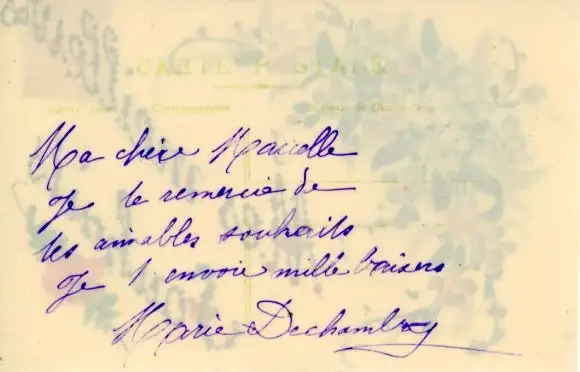 CARTE POSTALE
Correspondance
Ma chère Marcelle
Je te remercie de
tes aimables souhaits
Je t envoie mille baisers
Marie Dechamby